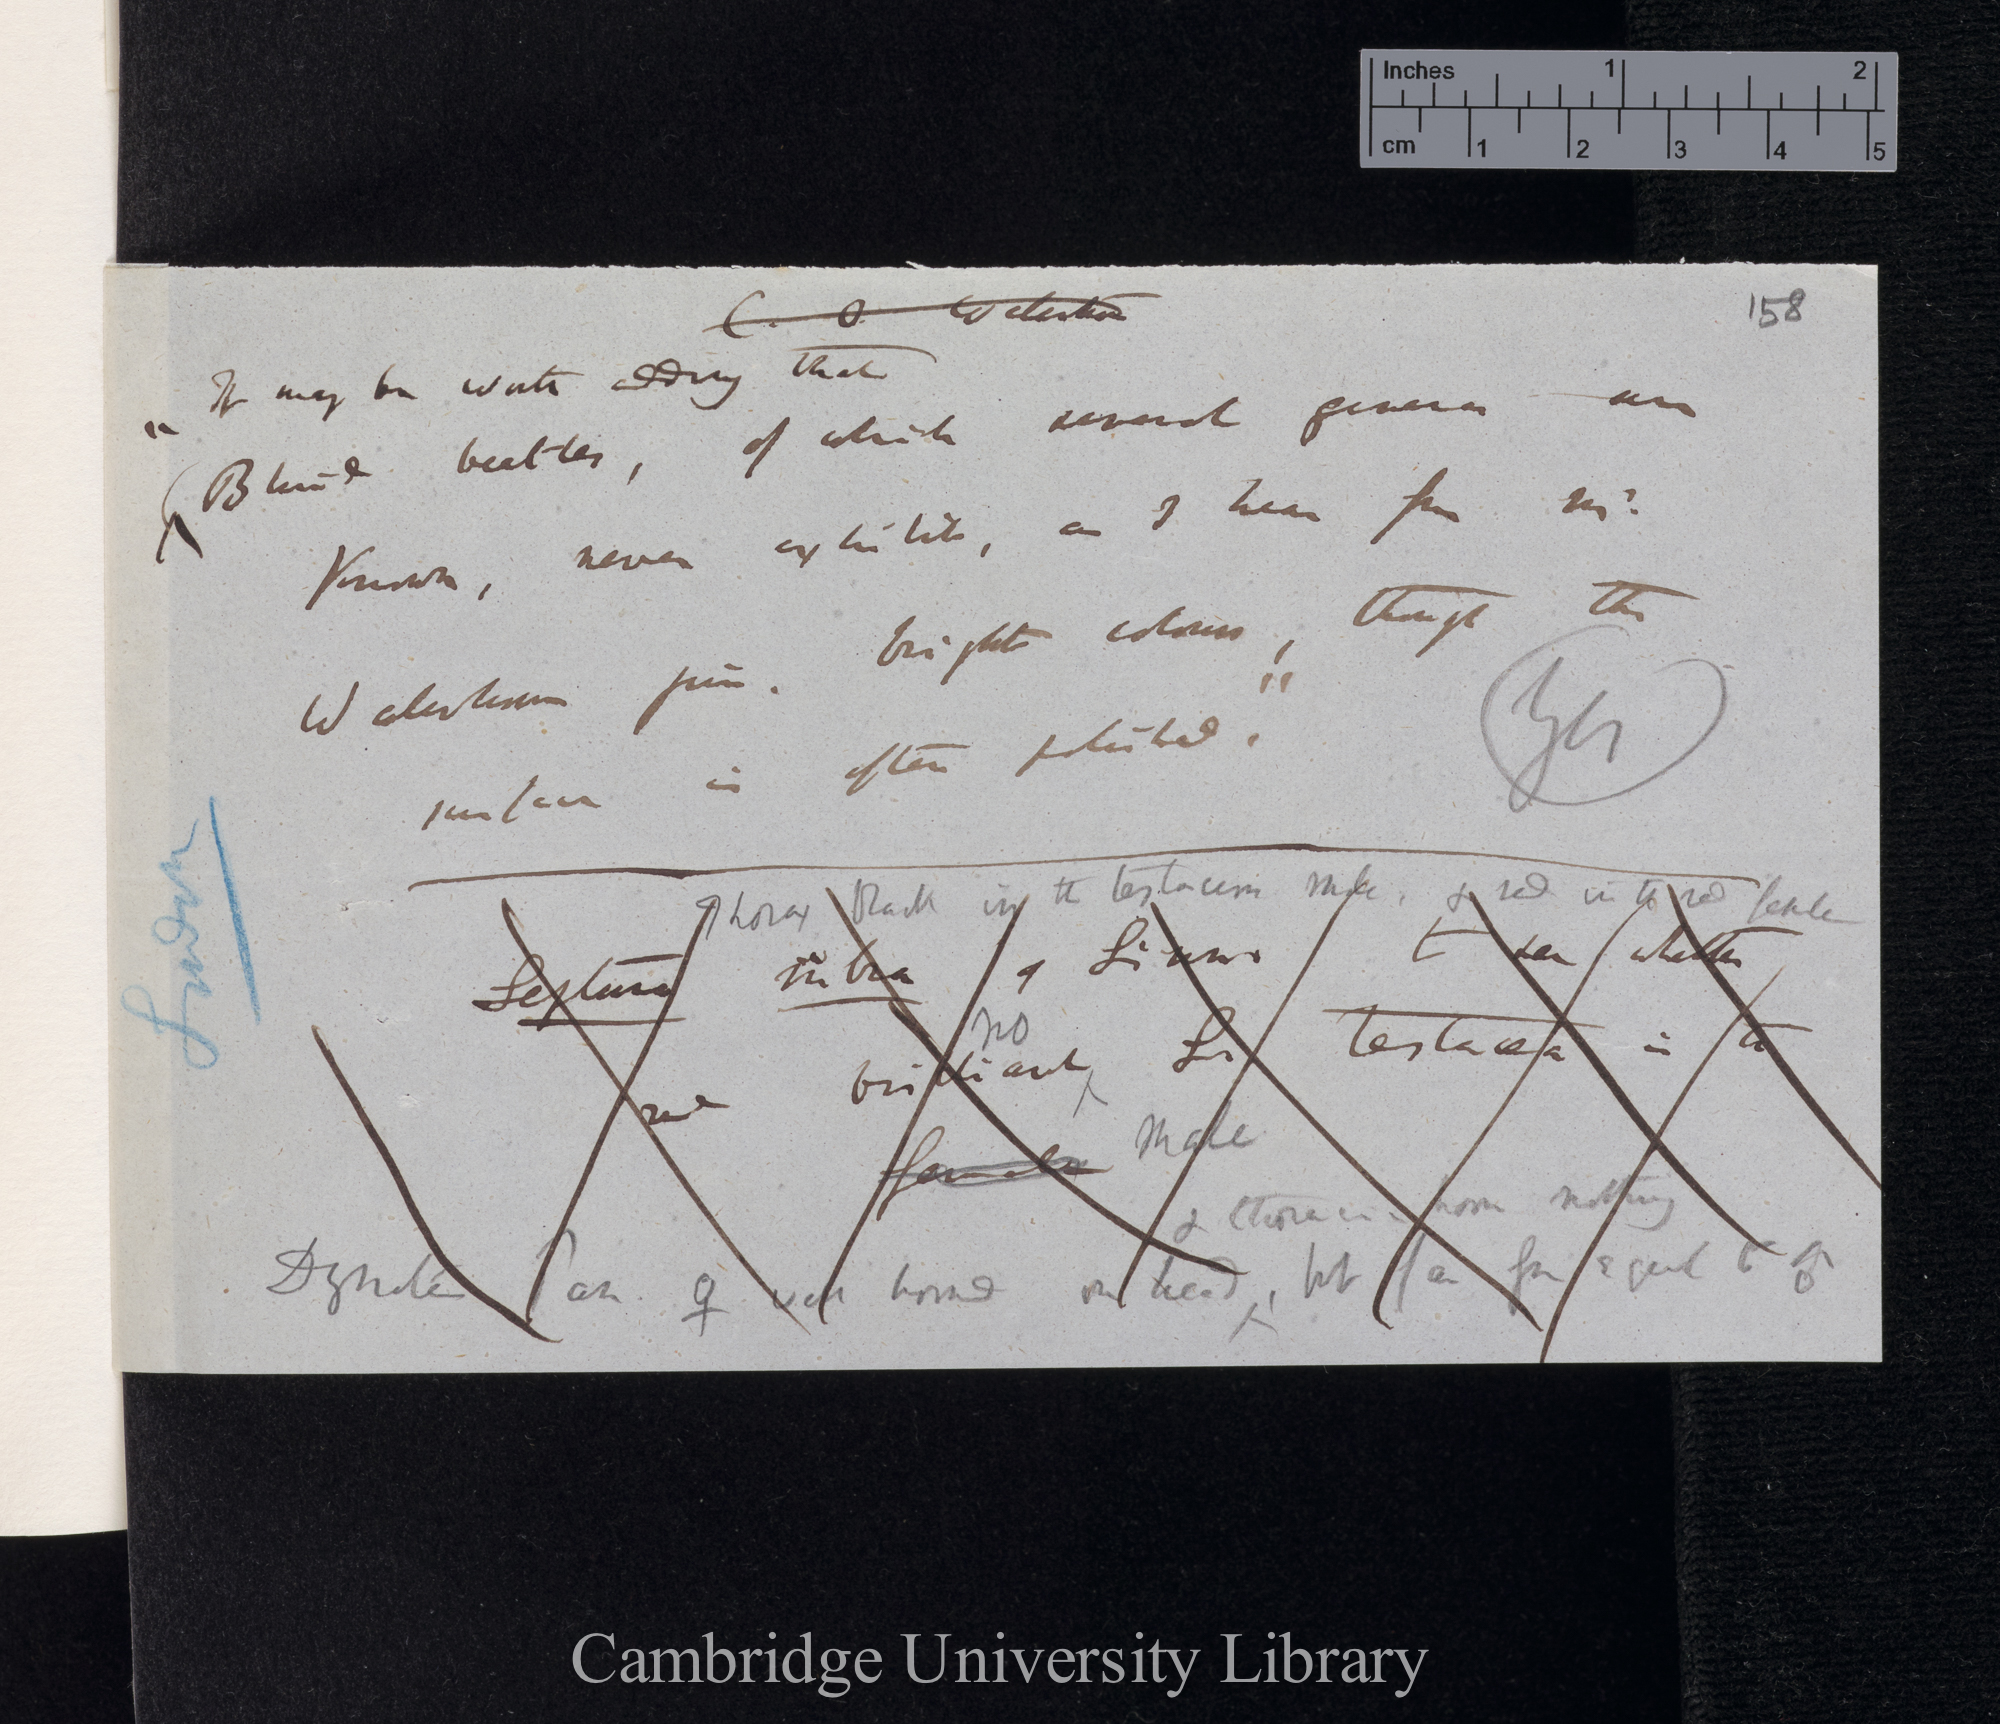 Inches 1 2
cm 1 2 3 4 5
158
C. O. Waterhouse
It may be worth adding that
" (Blind beetles, of which several genera are
Known, never exhibits, as I hear from Mr.
Waterhouse jun. bright colours, though the
surface is often polished."
Yes
London
Thorax black in the testaceous male, & red in the red female
Leptura rubra of Linn. to see whether
red brilliant no L. testacea is the
female male
& thoracic horn nothing
Dynastes Fam. ♀ well horned on head, but far from equal to ♂
Cambridge University Library